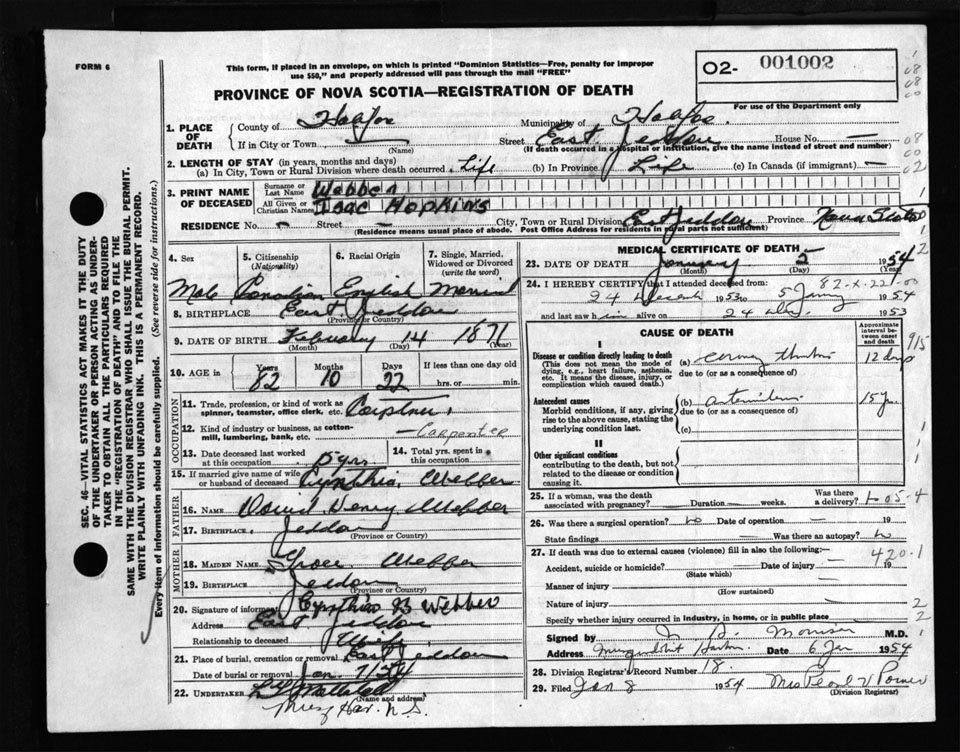 FORM 6
This form, if placed in an envelope, on which is printed "Dominion Statistics—Free, penalty for improper
use $50," and properly addressed will pass through the mail "FREE"
O2- 001002
For use of the Department only
PROVINCE OF NOVA SCOTIA—REGISTRATION OF DEATH
1. PLACE OF DEATH County of Halifax Municipality of Halifax
If in City or Town — (Name) Street East Jeddore House No. —
(If death occurred in a hospital or institution, give the name instead of street and number)
2. LENGTH OF STAY (in years, months and days)
(a) In City, Town or Rural Division where death occurred. Life (b) In Province Life (c) In Canada (if immigrant) —
3. PRINT NAME OF DECEASED
Surname or Last Name Webber
All Given or Christian Names Isac Hopkins
RESIDENCE No. — Street — City, Town or Rural Division East Jeddore Province Nova Scotia
(Residence means usual place of abode. Post Office Address for residents in rural parts not sufficient)
4. Sex
Male
5. Citizenship (Nationality)
Canadian
6. Racial Origin
English
7. Single, Married, Widowed or Divorced (write the word)
Married
8. BIRTHPLACE East Jeddore
(Province or Country)
9. DATE OF BIRTH February 14 1871
(Month) (Day) (Year)
10. AGE in Years 82 Months 10 Days 22 If less than one day old
hrs. or min.
OCCUPATION
11. Trade, profession, or kind of work as
spinner, teamster, office clerk, etc. Carpenter
12. Kind of industry or business, as cotton-
mill, lumbering, bank, etc. — Carpenter
13. Date deceased last worked
at this occupation 15 yrs
14. Total yrs. spent in
this occupation
15. If married give name of wife
or husband of deceased Cynthia Webber
FATHER
16. NAME David Henry Webber
17. BIRTHPLACE Jeddore
(Province or Country)
MOTHER
18. MAIDEN NAME Webber
19. BIRTHPLACE Jeddore
(Province or Country)
20. Signature of informant Cynthia B Webber
Address East Jeddore
Relationship to deceased Wife
21. Place of burial, cremation or removal East Jeddore
Date of burial or removal Jan 7/54
22. UNDERTAKER
(Name and Address)
Musq Har. N.S.
MEDICAL CERTIFICATE OF DEATH
23. DATE OF DEATH January 5 1954
(Month) (Day) (Year)
24. I HEREBY CERTIFY that I attended deceased from:
24 1953 to 5 1954
and last saw him alive on 24 1953
CAUSE OF DEATH
Approximate interval between onset and death
I
Disease or condition directly leading to death
(This does not mean the mode of
dying, e.g., heart failure, asthenia,
etc. It means the disease, injury, or
complication which caused death.)
(a) 12 days
due to (or as a consequence of)
Antecedent causes
Morbid conditions, if any, giving
rise to the above cause, stating the
underlying condition last.
(b) 15
due to (or as a consequence of)
(c)
II
Other significant conditions
contributing to the death, but not
related to the disease or condition
causing it.
25. If a woman, was the death
associated with pregnancy? — Duration — weeks. Was there
a delivery?
26. Was there a surgical operation? no Date of operation — 19
State findings — Was there an autopsy? no
27. If death was due to external causes (violence) fill in also the following:—
420.1
Accident, suicide or homicide? (State which) Date of injury 19
Manner of injury
(How sustained)
Nature of injury —
Specify whether injury occurred in industry, in home, or in public place
Signed by Morrison M.D.
Address Date 6 Jan 1954
28. Division Registrar's Record Number 18.
29. Filed Jan 8 1954 Mrs Pearl V
(Division Registrar)
SEC. 46—VITAL STATISTICS ACT MAKES IT THE DUTY
OF THE UNDERTAKER OR PERSON ACTING AS UNDER-
TAKER TO OBTAIN ALL THE PARTICULARS REQUIRED
IN THE "REGISTRATION OF DEATH" AND TO FILE THE
SAME WITH THE DIVISION REGISTRAR WHO SHALL ISSUE THE BURIAL PERMIT.
WRITE PLAINLY WITH UNFADING INK. THIS IS A PERMANENT RECORD.
Every item of information should be carefully supplied. (See reverse side for instructions.)